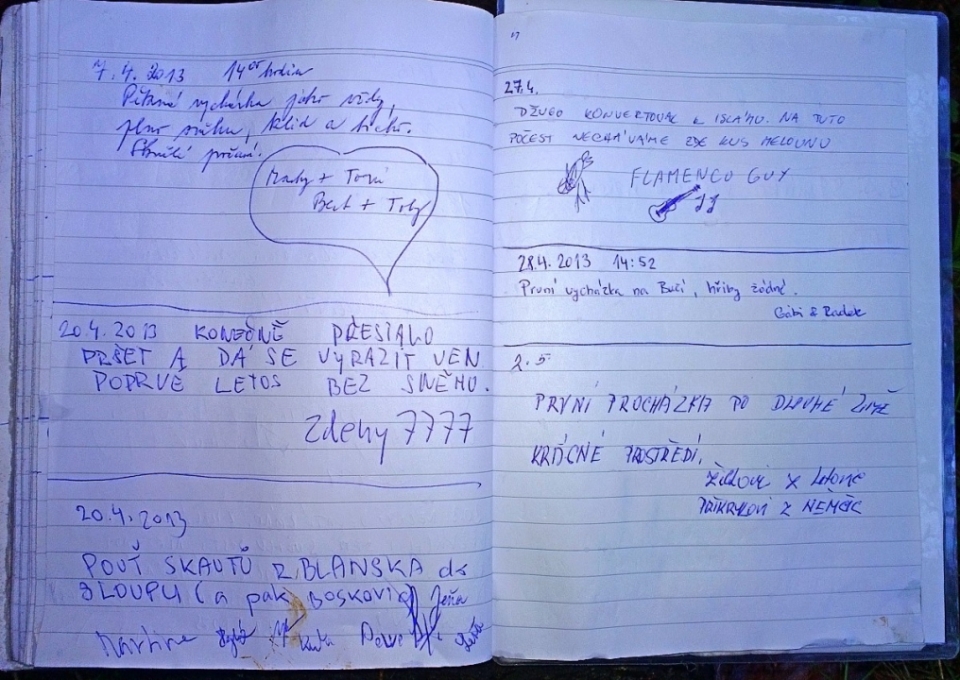 7.4. 2013 14⁰⁰ hodin
Pěkná vycházka jako vždy,
plno sněhu, klid a ticho.
Mady + Toni
Bert + Toby
20.4.2013 KONEČNĚ PŘESTALO
PRŠET A DÁ SE VYRAZIT VEN
POPRVÉ LETOS BEZ SNĚHU.
Zdeny 7777
20.4.2013
POUŤ SKAUTŮ Z BLANSKA do
SLOUPU (a pak BOSKOVIC)
Martina
27.4.
DŽUGO KONVERTOVAL K ISLÁMU. NA TUTO
POČEST NECHÁVÁME ZDE KUS MELOUNU
FLAMENCO GUY
JJ
28.4.2013 14:52
První vycházka na Bučí, hřiby žádné.
Gábi & Radek
2.5
PRVNÍ PROCHÁZKA PO DLOUHÉ ZIMĚ
KRÁSNÉ PROSTŘEDÍ.
PŘIKRYLOVI Z NĚMČIC